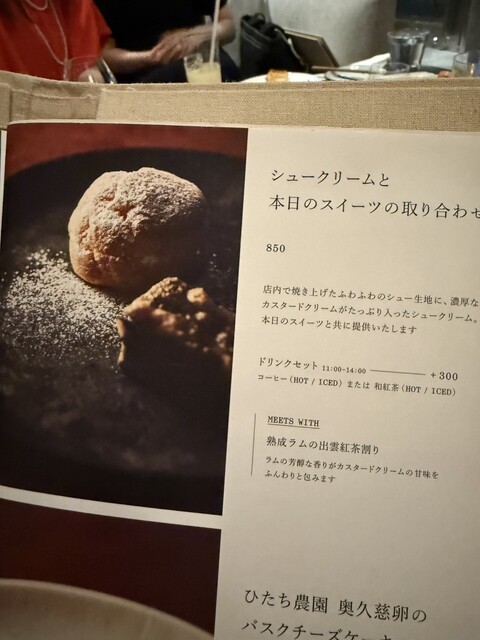 シュークリームと
本日のスイーツの取り合わせ
850
店内で焼き上げたふわふわのシュー生地に、濃厚な
カスタードクリームがたっぷり入ったシュークリーム。
本日のスイーツと共に提供いたします
ドリンクセット 11:00-14:00 +300
コーヒー(HOT / ICED) または 和紅茶(HOT / ICED)
MEETS WITH
熟成ラムの出雲紅茶割り
ラムの芳醇な香りがカスタードクリームの甘味を
ふんわりと包みます
ひたち農園 奥久慈卵の
バスクチーズケーキ